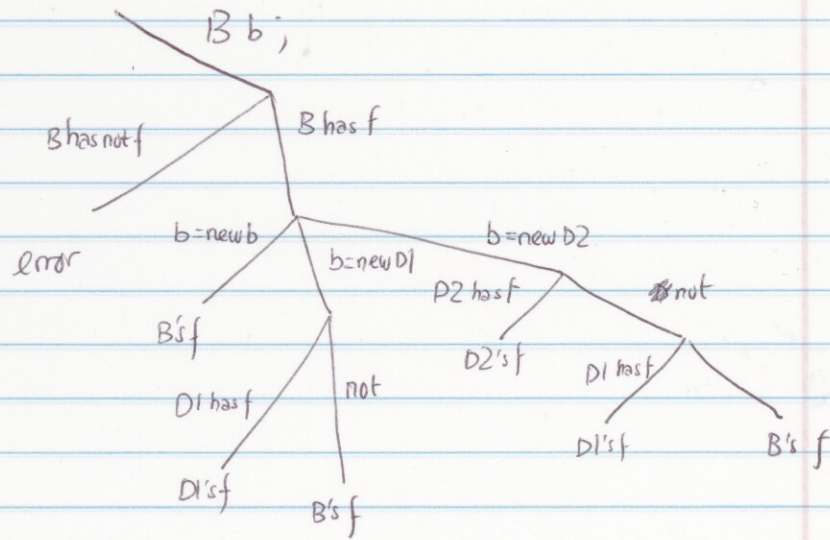 B b ;
B has not f
B has f
error
b=new b
b=new D1
b=new D2
B's f
D2 has f
not
D2's f
D1 has f
not
D1 has f
D1's f
B's f
D1's f
B's f